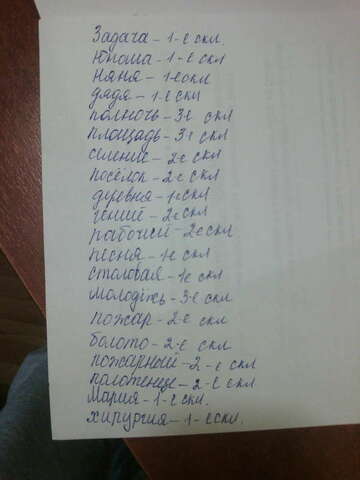 Задача - 1-е скл.
Юноша - 1-е скл
няня - 1-е скл
дядя - 1-е скл
полночь - 3-е скл
площадь - 3-е скл
селение - 2-е скл
посёлок - 2-е скл
деревня - 1-е скл
гений - 2-е скл
рабочий - 2-е скл
песня - 1-е скл
столовая - 1-е скл
молодёжь - 3-е скл
пожар - 2-е скл
болото - 2-е скл
пожарный - 2-е скл
полотенце - 2-е скл
Мария - 1-е скл.
хирургия - 1-е скл.